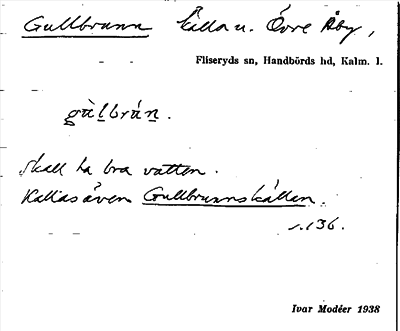 Gullbrunn källa u. Övre Åby,
Fliseryds sn, Handbörds hd, Kalm. l.
gàl̠brán̠.
Skall ha bra vatten.
Kallas även Gullbrunnskällan.
s. 136.
Ivar Modéer 1938